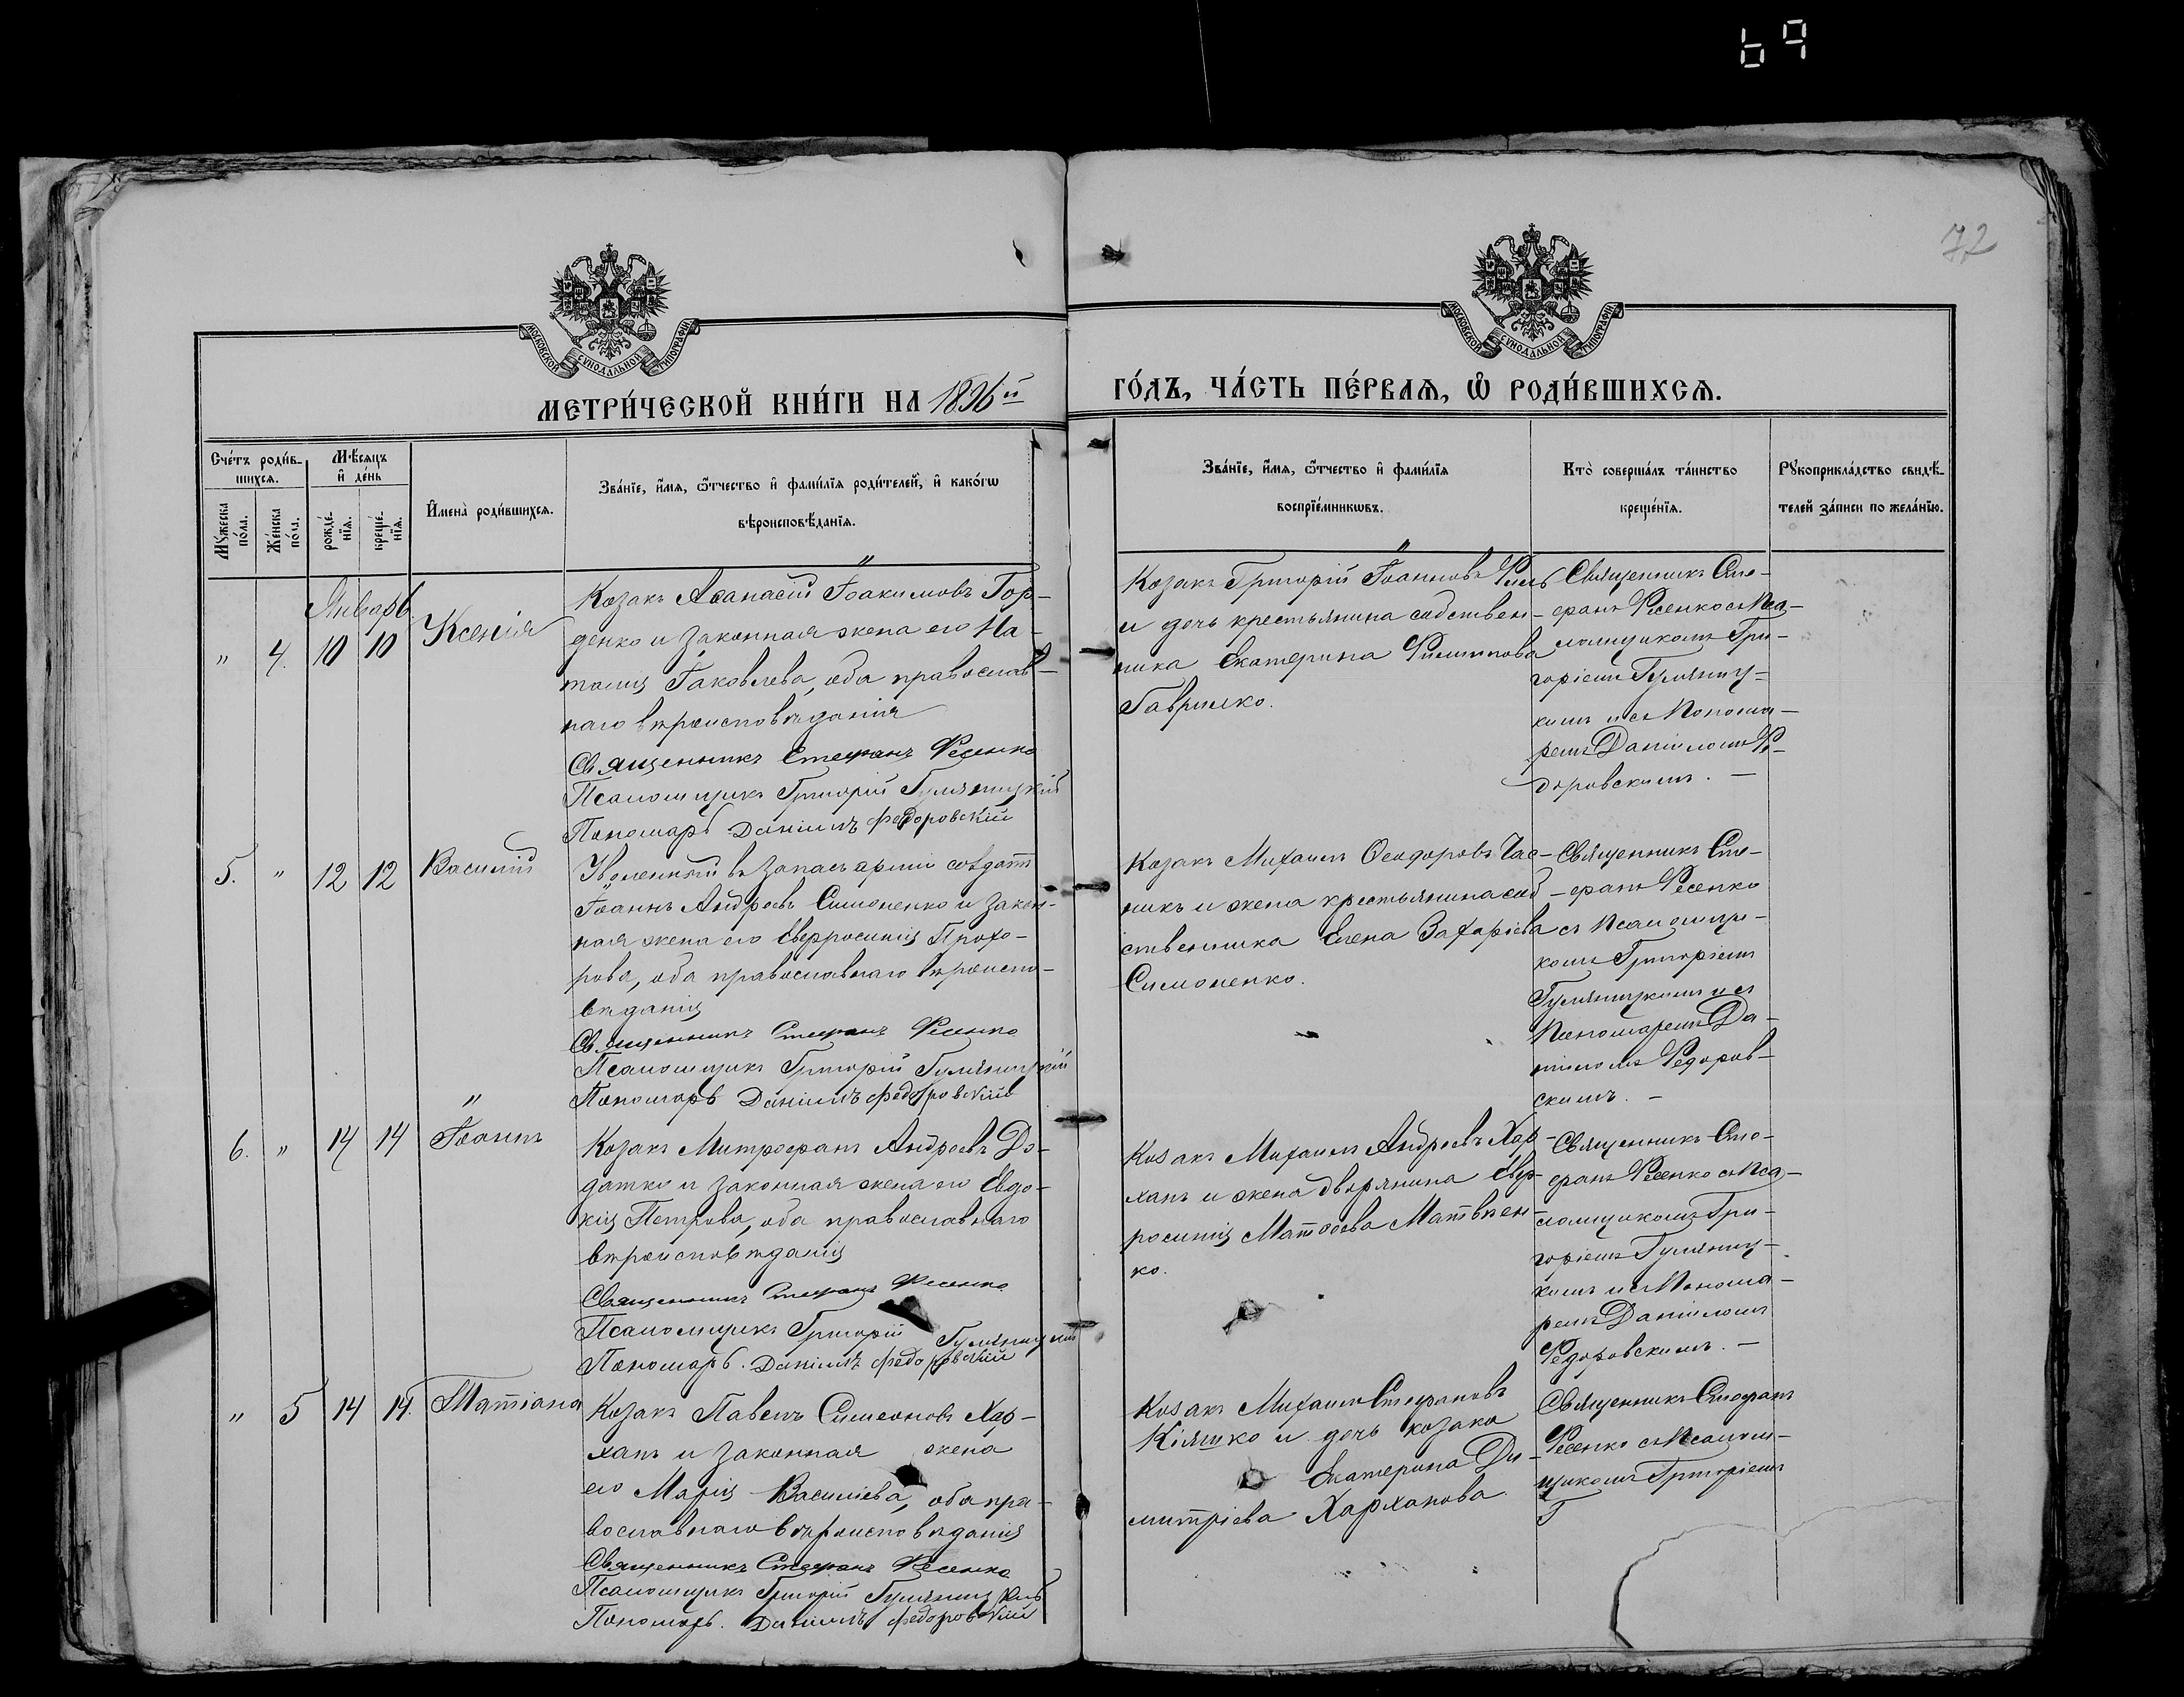 69
72
МОСКОВСКОЙ СѴНОДАЛЬНОЙ ТИПОГРАФІИ
МОСКОВСКОЙ СѴНОДАЛЬНОЙ ТИПОГРАФІИ
МЕТРИ́ЧЕСКОЙ КНИ́ГИ НА 1896й
ГО́ДЪ, ЧА́СТЬ ПЕ́РВАѦ, Ѽ РОДИ́ВШИХСѦ.
Сче́тъ роди́в-
шихсѧ.
Мꙋ́жеска
по́ла.
Же́нска
по́ла.
Мѣ́сѧцъ
и҆ де́нь
рожде́-
нїѧ.
креще́-
нїѧ.
И҆мена̀ роди́вшихсѧ.
Зва́нїе, и҆́мѧ, ѻ҆́тчество и҆ фами́лїѧ роди́телей, и҆ како́гѡ
вѣроисповѣ́данїѧ.
Зва́нїе, и҆́мѧ, ѻ҆́тчество и҆ фами́лїѧ
воспрїе́мникѡвъ.
Кто̀ соверша́лъ та́инство
креще́нїѧ.
Рꙋкоприкла́дство свидѣ́-
телей за́писи по жела́нїю.
Январь
" 4. 10 10 Ксенія
Козакъ Аѳанасій Іоакимовъ Гор-
денко и законная жена его На-
талія Іаковлева, оба православ-
наго вѣроисповѣданія
Священникъ Стефанъ Фесенко
Псаломщикъ Григорій Гуляницкій
Пономарь Даніилъ Федоровскій
Козакъ Григорій Іоанновъ
и дочь крестьянина собствен-
ника Екатерина Филиппова
Гаврилко.
Священникъ Сте-
фанъ Фесенко съ Пса-
ломщикомъ Гри-
горіемъ Гуляниц-
кимъ и съ Понома-
ремъ Даніиломъ Фе-
доровскимъ. —
5. " 12 12 Василій
Уволенный въ запасъ арміи солдатъ
Іоаннъ Андреевъ Симоненко и закон-
ная жена его Евфросинія Прохо-
рова, оба православнаго вѣроиспо-
вѣданія
Священникъ Стефанъ Фесенко
Псаломщикъ Григорій Гуляницкій
Пономарь Даніилъ Федоровскій
Козакъ Михаилъ Ѳеодоровъ Час-
никъ и жена крестьянина соб-
ственника Елена Захаріева
Симоненко.
Священникъ Сте-
фанъ Фесенко
съ Псаломщи-
комъ Григоріемъ
Гуляницкимъ и съ
Пономаремъ Да-
ніиломъ Федоров-
скимъ. —
6. " 14 14 Іоаннъ
Козакъ Митрофанъ Андреевъ До-
датко и законная жена его Евдо-
кія Петрова, оба православнаго
вѣроисповѣданія
Священникъ Стефанъ Фесенко
Псаломщикъ Григорій Гуляницкій
Пономарь. Даніилъ Федоровскій
Козакъ Михаилъ Андреевъ Хар-
ханъ и жена дворянина Евф-
росинія Матѳеева Матвѣен-
ко.
Священникъ Сте-
фанъ Фесенко съ Пса-
ломщикомъ Гри-
горіемъ Гуляниц-
кимъ и съ Понома-
ремъ Даніиломъ
Федоровскимъ. —
" 5 14 14. Татіана
Козакъ Павелъ Симеоновъ Хар-
ханъ и законная жена
его Марія Василіева, оба пра-
вославнаго вѣроисповѣданія
Священникъ Стефанъ Фесенко
Псаломщикъ Григорій Гуляницкій
Пономарь. Даніилъ Федоровскій
Козакъ Михаилъ Стефановъ
Кіяшко и дочь козака
Екатерина Ди-
митріева Харханова
Священникъ Стефанъ
Фесенко съ Псалом-
щикомъ Григоріемъ
Г